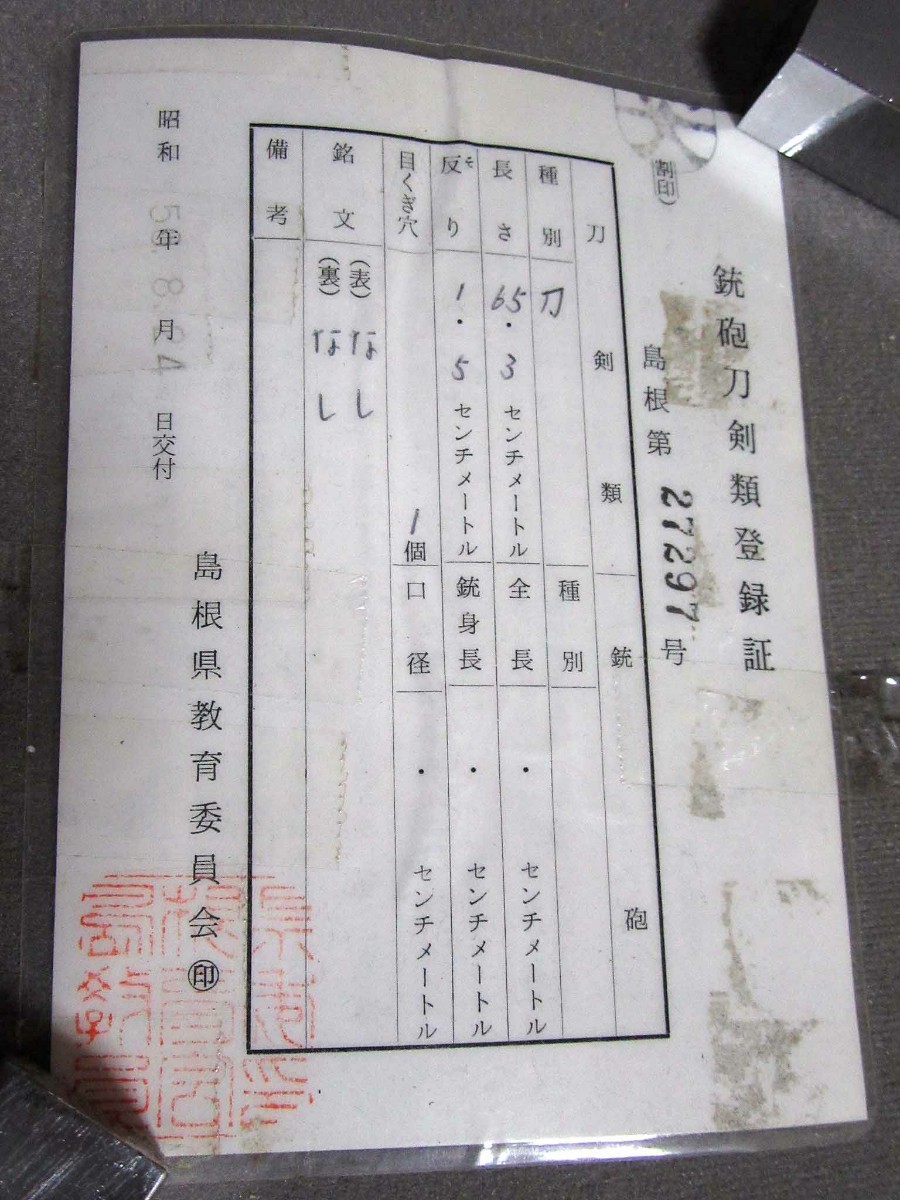 銃砲刀剣類登録証
割印
島根第 27297 号
刀剣類
銃砲
種別 刀
種別
長さ 65.3 センチメートル
全長 ・ センチメートル
反り そ 1.5 センチメートル
銃身長 ・ センチメートル
目くぎ穴 1個
口径 ・ センチメートル
銘文 (表) なし
(裏) なし
備考
昭和 年 8 月 24 日交付
島根県教育委員会 ㊞